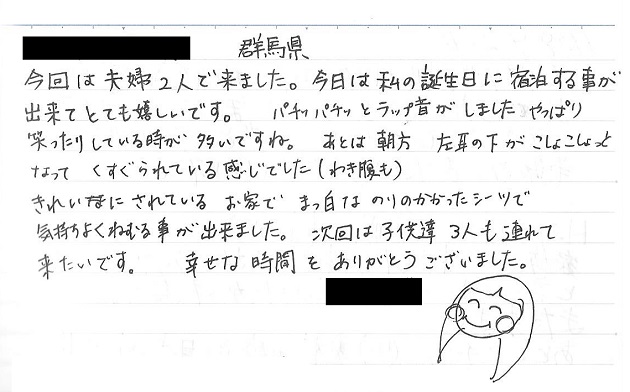 群馬県
今回は夫婦2人で来ました。今日は私の誕生日に宿泊する事が
出来てとても嬉しいです。 パチッパチッとラップ音がしました やっぱり
笑ったりしている時が多いですね。 あとは朝方 左耳の下がこしょこしょっと
なって くすぐられている感じでした(わき腹も)
きれいにされている お家で まっ白な のりのかかったシーツで
気持ちよくねむる事が出来ました。 次回は子供達3人も連れて
来たいです。 幸せな時間を ありがとうございました。